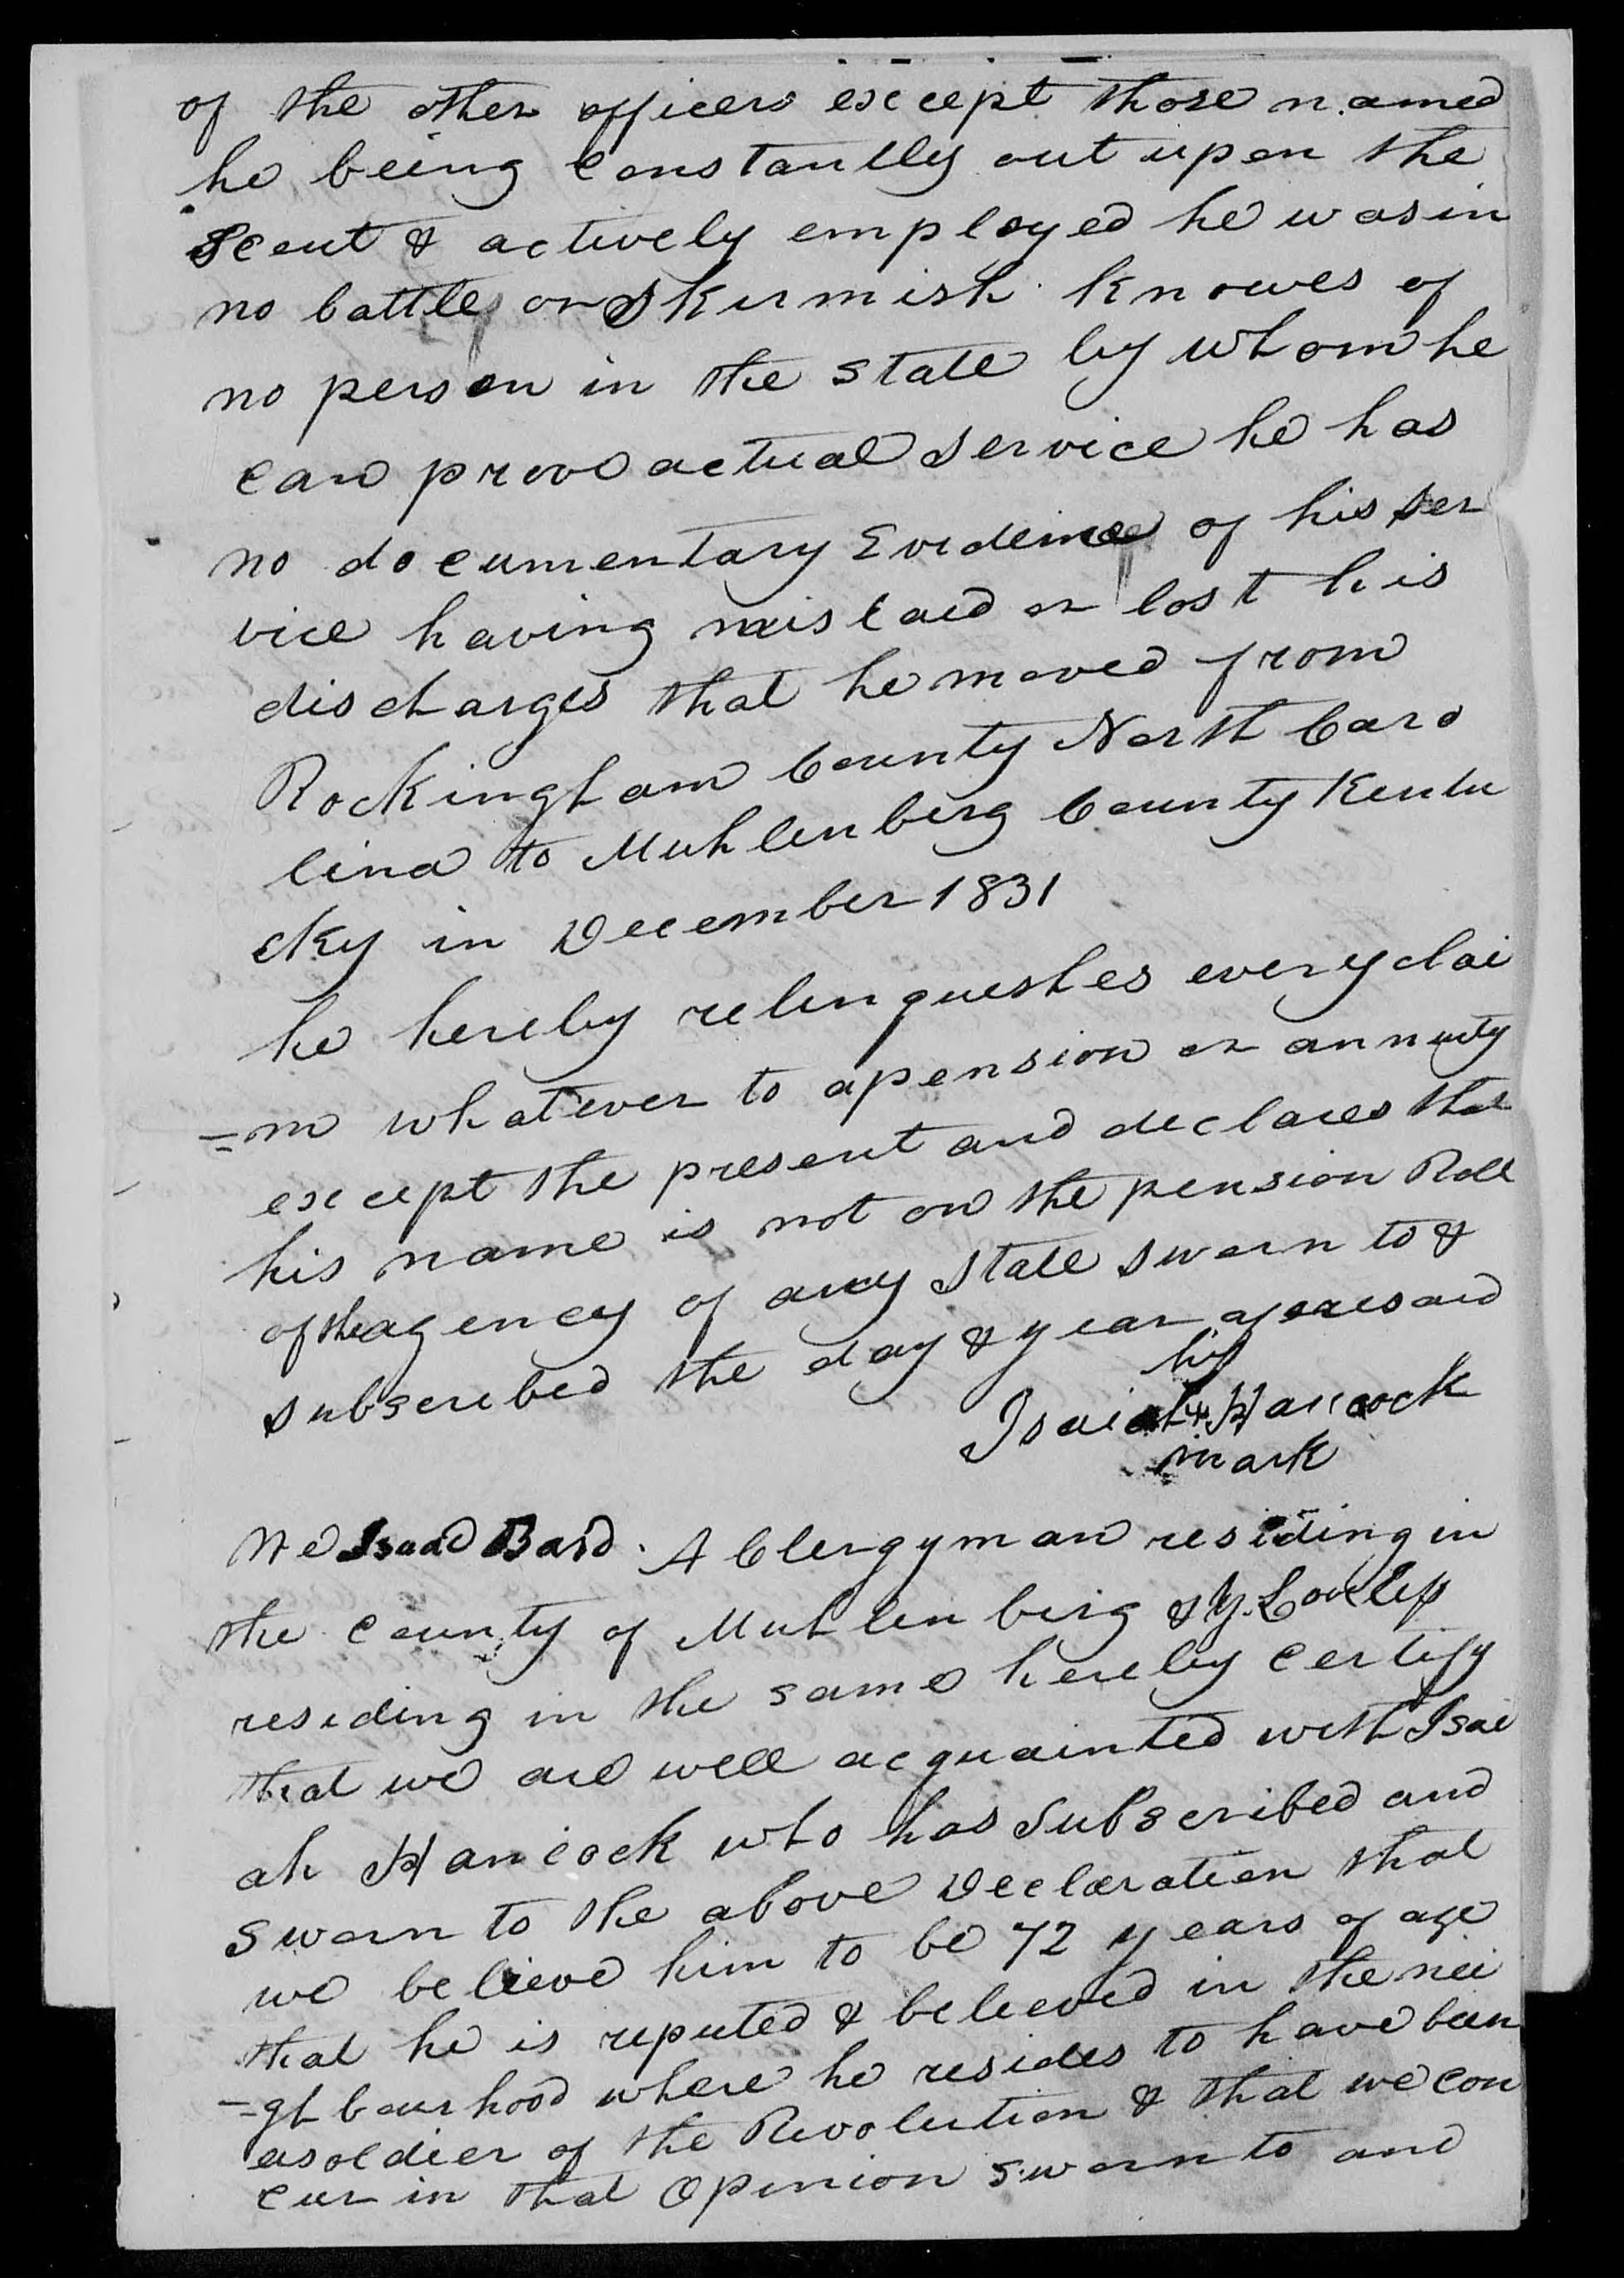 of the other officers except those named
he being constantly out upon the
Scout & actively employed he was in
no battles or Skirmish knowes of
no person in the state by whom he
can prove actual service he has
no documentary Evidence of his ser
vice having mislaid or lost his
discharges that he moved from
Rockingham County North Caro
lina to Muhlenberg County Kentu
cky in December 1831
he hereby relinqueshes every clai
=m whatever to a pension or annuity
except the present and declares that
his name is not on the pension Roll
of the agency of any state sworn to &
subscribed the day & year aforesaid
his
Isaiah + Hancock
mark
We Isaac Bard. A Clergyman residing in
the County of Muhlenberg &
residing in the same hereby certify
that we are well acquainted with Isai
ah Hancock who has subscribed and
sworn to the above Declaration that
we believe him to be 72 years of age
that he is reputed & believed in the nei
=ghbourhood where he resides to have been
a soldier of the Revolution & that we con
cur in that Opinion sworn to and